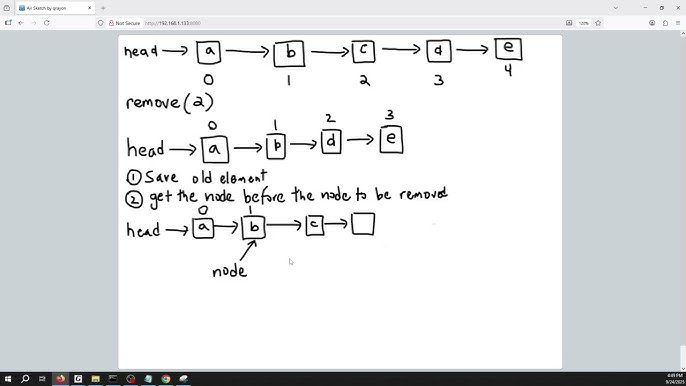 Air Sketch by qrayon
Not Secure http://192.168.1.133:8080 120%
head → a → b → c → d → e
0 1 2 3 4
remove(2)
0 1 2 3
head → a → b → d → e
① Save old element
② get the node before the node to be removed
0 1
head → a → b → c →
node
4:49 PM
9/24/2025